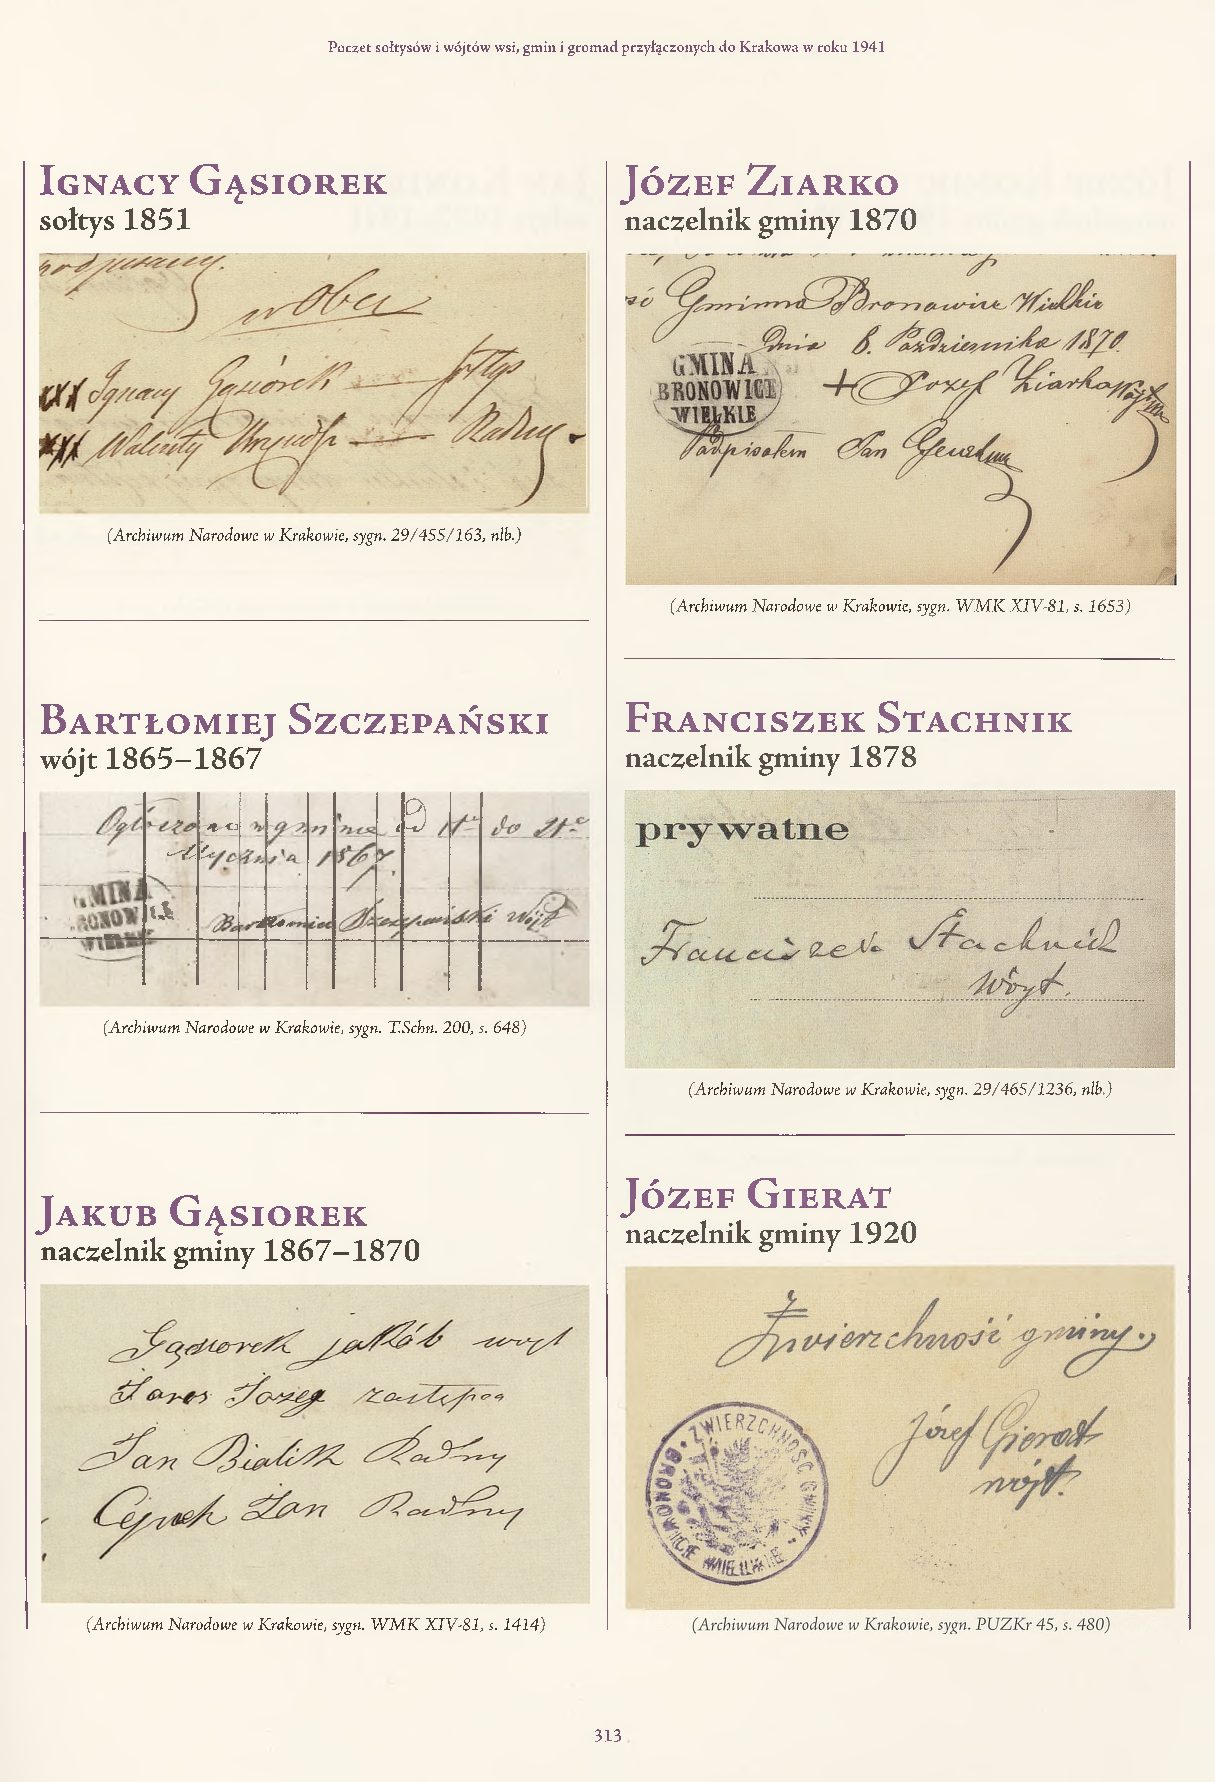 Poczet sołtysów i wójtów wsi, gmin i gromad przyłączonych do Krakowa w roku 1941
Ignacy Gąsiorek
sołtys 1851
podpisany.
Ignacy Gąsiorek — Sołtys
Walenty — Radny
(Archiwum Narodowe w Krakowie, sygn. 29/455/163, nlb.)
Bartłomiej Szczepański
wójt 1865–1867
Ogłoszono w gminie od 11go do 21go
Stycznia 1867
GMINA
BRONOWICE
WIELKIE
Bartłomiej Szczepański Wójt
(Archiwum Narodowe w Krakowie, sygn. T.Schn. 200, s. 648)
Jakub Gąsiorek
naczelnik gminy 1867–1870
Gąsiorek jakób woyt
Jaros Jozef zastępca
Jan Bialik Radny
Jan Radny
(Archiwum Narodowe w Krakowie, sygn. WMK XIV-81, s. 1414)
Józef Ziarko
naczelnik gminy 1870
Gminna Bronowice Wielkie
Dnia 8. Października 1870.
GMINA
BRONOWICE
WIELKIE
+ Jozef Ziarko Wójt
Podpisałem Jan
(Archiwum Narodowe w Krakowie, sygn. WMK XIV-81, s. 1653)
Franciszek Stachnik
naczelnik gminy 1878
prywatne
Franciszek Stachnik
Woyt.
(Archiwum Narodowe w Krakowie, sygn. 29/465/1236, nlb.)
Józef Gierat
naczelnik gminy 1920
Zwierzchność gminy.
ZWIERZCHNOŚĆ GMINY
BRONOWICE WIELKIE
Józef Gierat
wójt.
(Archiwum Narodowe w Krakowie, sygn. PUZKr 45, s. 480)
313